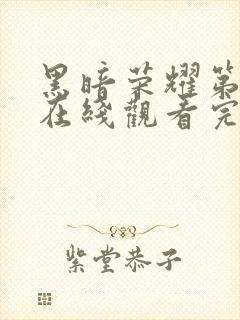 黑暗荣耀第
在线观看完
紫堂恭子